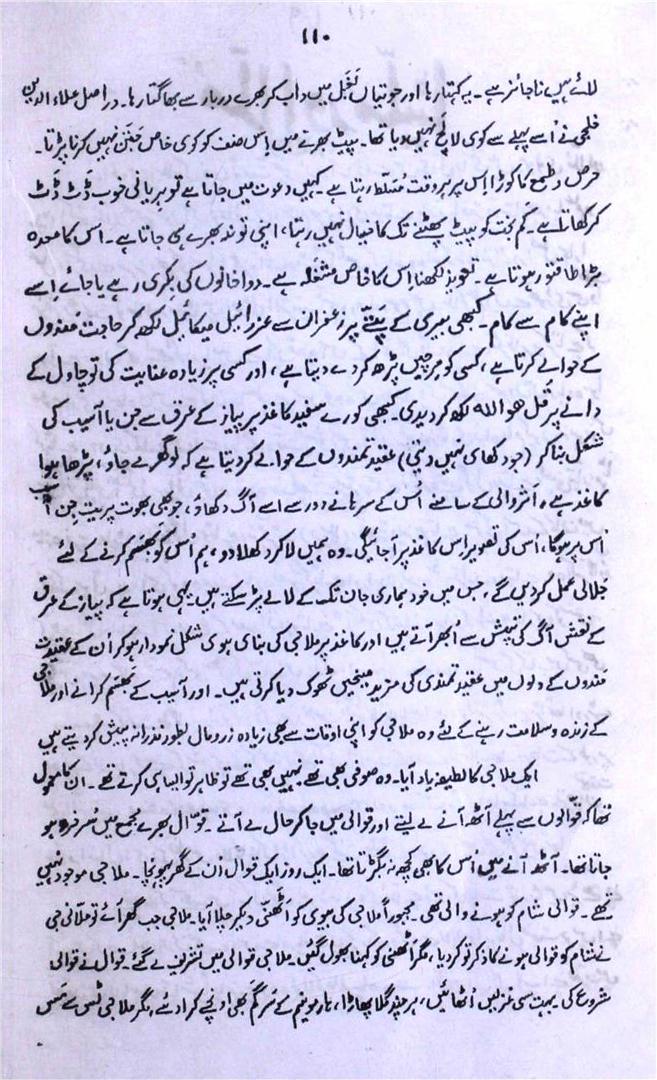 ۱۱۰
لائے ہیں ناجائز ہے۔ یہ کہتا رہا اور جوتیاں بَغَل میں داب کر بھرے دربار سے بھاگتا رہا۔ دراصل علاء الدین
خلجی نے اُسے پہلے سے کوی لالچ نہیں دیا تھا۔ پیٹ بھرنے میں اِس صنف کو کوی خاص جَتَن نہیں کرنا پڑتا۔
حرص و طمع کا کوڑا اِس پر ہر وقت مُسَلّط رہتا ہے۔ کہیں دعوت میں جاتا ہے تو بریانی خوب ڈَٹ ڈَٹ
کر کھاتا ہے۔ کم بخت کو پیٹ پھٹنے تک کا خیال نہیں رہتا، اپنی توند بھرے ہی جاتا ہے۔ اس کا معدہ
بڑا طاقتور ہوتا ہے۔ تعویذ لکھنا اس کا خاص مشغَلہ ہے۔ دواخانوں کی بِکری رہے یا جائے اِسے
اپنے کام سے کام۔ کبھی بیری کے پَتّے پر زعفران سے عزرائیل میکائیل لکھ کر حاجت مَندوں
کے حوالے کرتا ہے، کسی کو مرچیں پڑھ کر دے دیتا ہے، اور کسی پر زیادہ عنایت کی تو چاول کے
دانے پر قُل ھواللہ لکھ کر دیدی۔ کبھی کورے سفید کاغذ پر پیاز کے عرق سے جن یا آسیب کی
شکل بنا کر (جو دکھای نہیں دیتی) عقیدتمندوں کے حوالے کر دیتا ہے کہ لو گھر لے جاؤ، پڑھا ہوا
کاغذ ہے، اَثر والی کے سامنے اُس کے سرہانے دور سے اسے آگ دکھاؤ، جو بھی بھوت پریت جِن آسیب
اُس پر ہوگا، اُس کی تصویر اِس کاغذ پر آجائیگی۔ وہ ہمیں لا کر دکھلا دو، ہم اُس کو بھسَم کرنے کے لئے
جَلالی عمل کر دیں گے، جس میں خود ہماری جان تک کے لالے پڑ سکتے ہیں۔ یہی ہوتا ہے کہ پیاز کے عرق
کے نقش آگ کی تپِش سے اُبھر آتے ہیں اور کاغذ پر ملاجی کی بنای ہوی شکل نمودار ہو کر اُن کے عقیدت
مندوں کے دلوں میں عقیدتمندی کی مزید میخیں ٹھوک دیا کرتی ہیں۔ اور آسیب کے بھسَم کرانے اور ملاجی
کے زندہ و سلامت رہنے کے لئے وہ ملاجی کو اپنی اوقات سے بھی زیادہ زر و مال بطور نذرانہ پیش کر دیتے ہیں
ایک ملاجی کا لطیفہ یاد آیا۔ وہ صوفی بھی تھے نہیں بھی تھے تو ظاہر تو ایسا ہی کرتے تھے۔ ان کا معمول
تھا کہ قوّالوں سے پہلے آٹھ آنے لے لیتے اور قوالی میں جا کر حال لے آتے۔ قوّال بھرے مجمع میں سُرخ رو ہو
جاتا تھا۔ آٹھ آنے میں اُس کا بھی کچھ نہ بگڑتا تھا۔ ایک روز ایک قوال اُن کے گھر پہونچا۔ ملاجی موجود نہیں
تھے۔ قوالی شام کو ہونے والی تھی۔ مجبوراً ملاجی کی بیوی کو اَٹھَنّی دیکر چلا آیا۔ ملاجی جب گھر آئے تو ملّانی جی
نے شام کو قوالی ہونے کا ذکر تو کر دیا، مگر اَٹھنی کو کہنا بھول گئیں۔ ملاجی قوالی میں تشریف لے گئے۔ قوال نے قوالی
شروع کی بہت سی غزلیں اُٹھائیں، ہر چند گلا پھاڑا، ہارمونیم کے سُر گم بھی اونچے کرا دئے، مگر ملاجی ٹس سے مَس